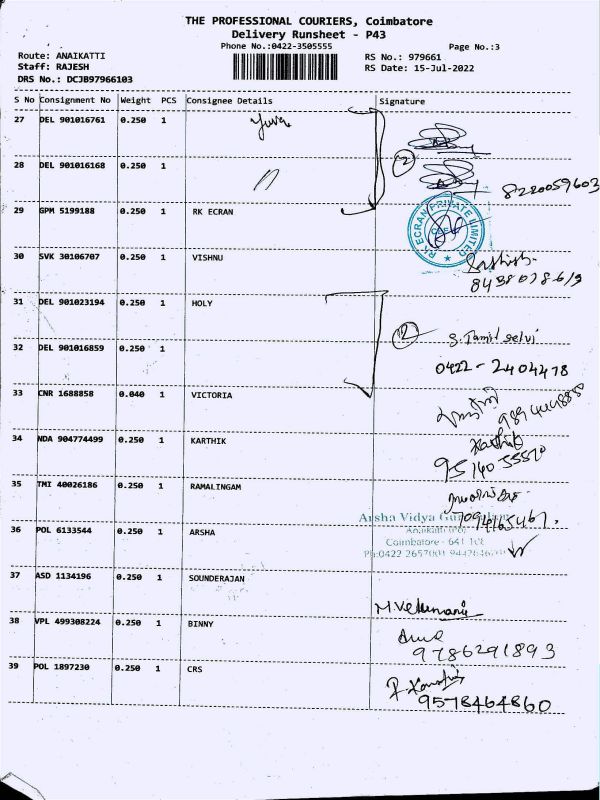 THE PROFESSIONAL COURIERS, Coimbatore
Delivery Runsheet - P43
Phone No.:0422-3505555
Page No.:3
Route: ANAIKATTI
RS No.: 979661
Staff: RAJESH
RS Date: 15-Jul-2022
DRS No.: DCJB97966103
S No Consignment No Weight PCS Consignee Details Signature
27 DEL 901016761 0.250 1 Yuva
28 DEL 901016168 0.250 1 2
8220059603
29 GPM 5199188 0.250 1 RK ECRAN
RK ECRAN PRIVATE LIMITED
30 SVK 30106707 0.250 1 VISHNU
31 DEL 901023194 0.250 1 HOLY
2 S. Tamil Selvi
32 DEL 901016859 0.250 1
0422-2404478
33 CNR 1688858 0.040 1 VICTORIA
34 NDA 904774499 0.250 1 KARTHIK
Karthik
35 TMI 40026186 0.250 1 RAMALINGAM
7094165467.
36 POL 6133544 0.250 1 ARSHA
Arsha Vidya
Coimbatore - 641
Ph:0422 2657001
37 ASD 1134196 0.250 1 SOUNDERAJAN
38 VPL 499308224 0.250 1 BINNY
9786291893
39 POL 1897230 0.250 1 CRS
9578464860